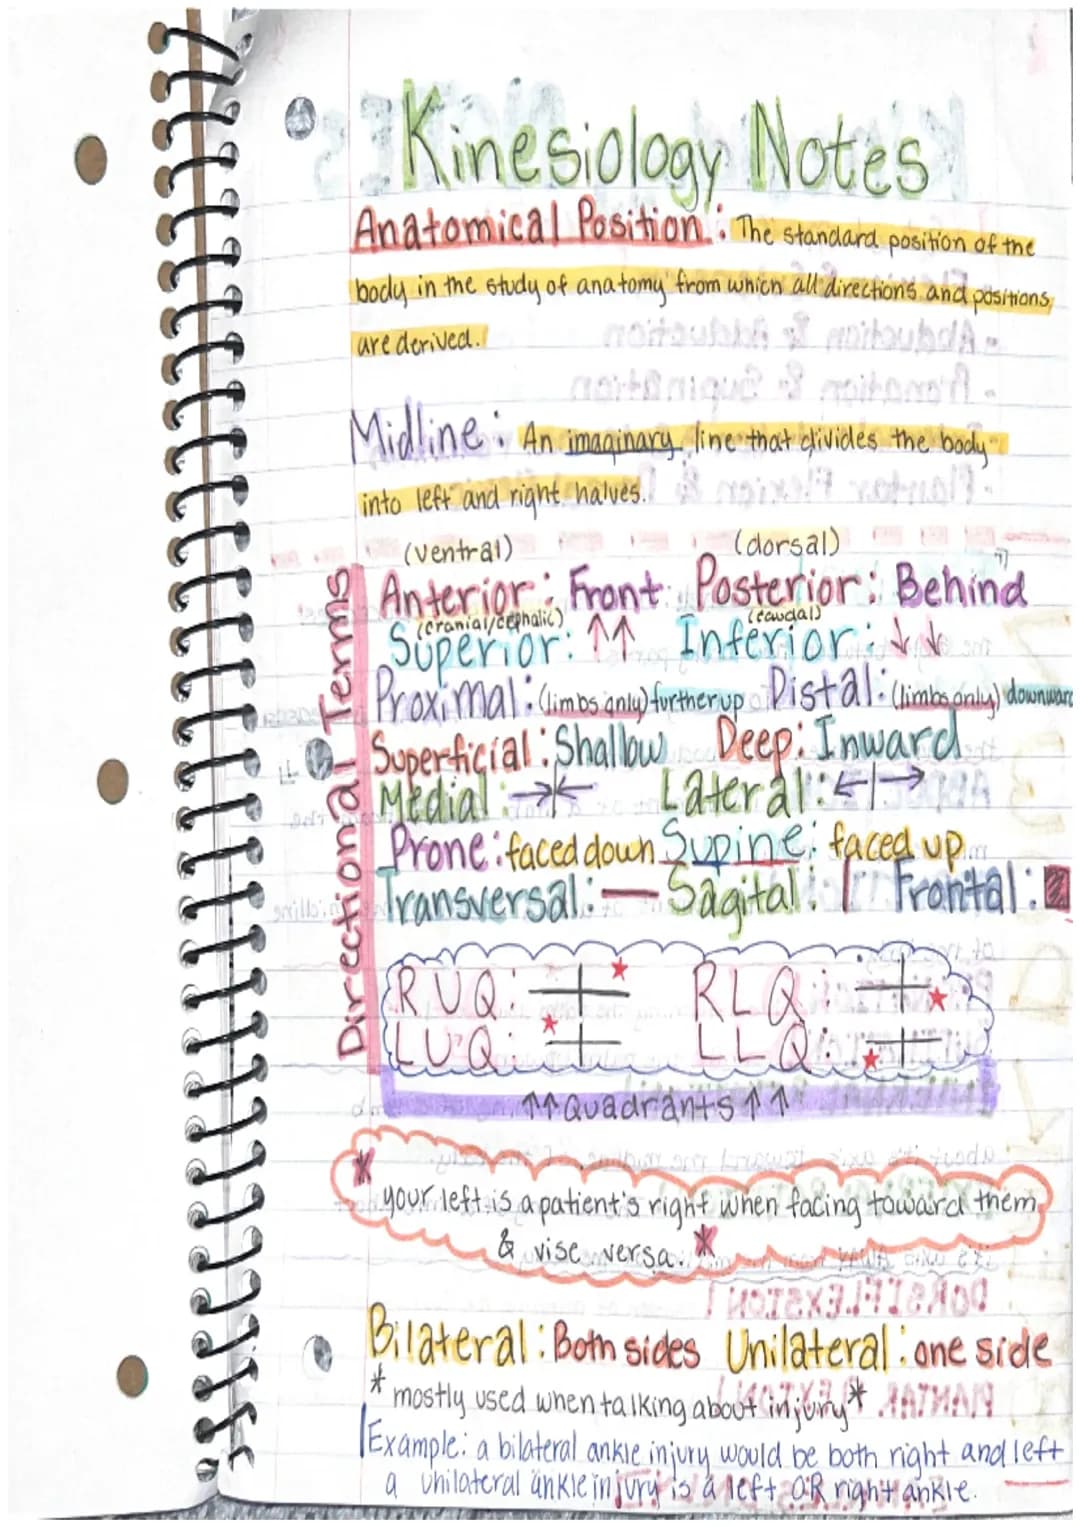 Kinesiology Notes
Anatomical Position: The standard position of the
body in the study of anatomy from which all directions and positions
are derived.
Midline: An imaginary line that divides the body
into left and right halves.
(ventral) (dorsal)
Directional Terms
Anterior: Front Posterior: Behind
(cranial/cephalic) (caudal)
Superior: ↑↑ Inferior: ↓↓
Proximal: (limbs only) further up Distal: (limbs only) downward
Superficial: Shallow Deep: Inward
Medial: →|← Lateral: ←|→
Prone: faced down Supine: faced up
Transversal: — Sagital: | Frontal:
RUQ: RLQ:
LUQ: LLQ:
↑↑ Quadrants ↑↑
* your left is a patient's right when facing toward them
& vise versa. *
Bilateral: Both sides Unilateral: one side
* mostly used when talking about injury *
Example: a bilateral ankle injury would be both right and left
a unilateral ankle injury is a left OR right ankle.